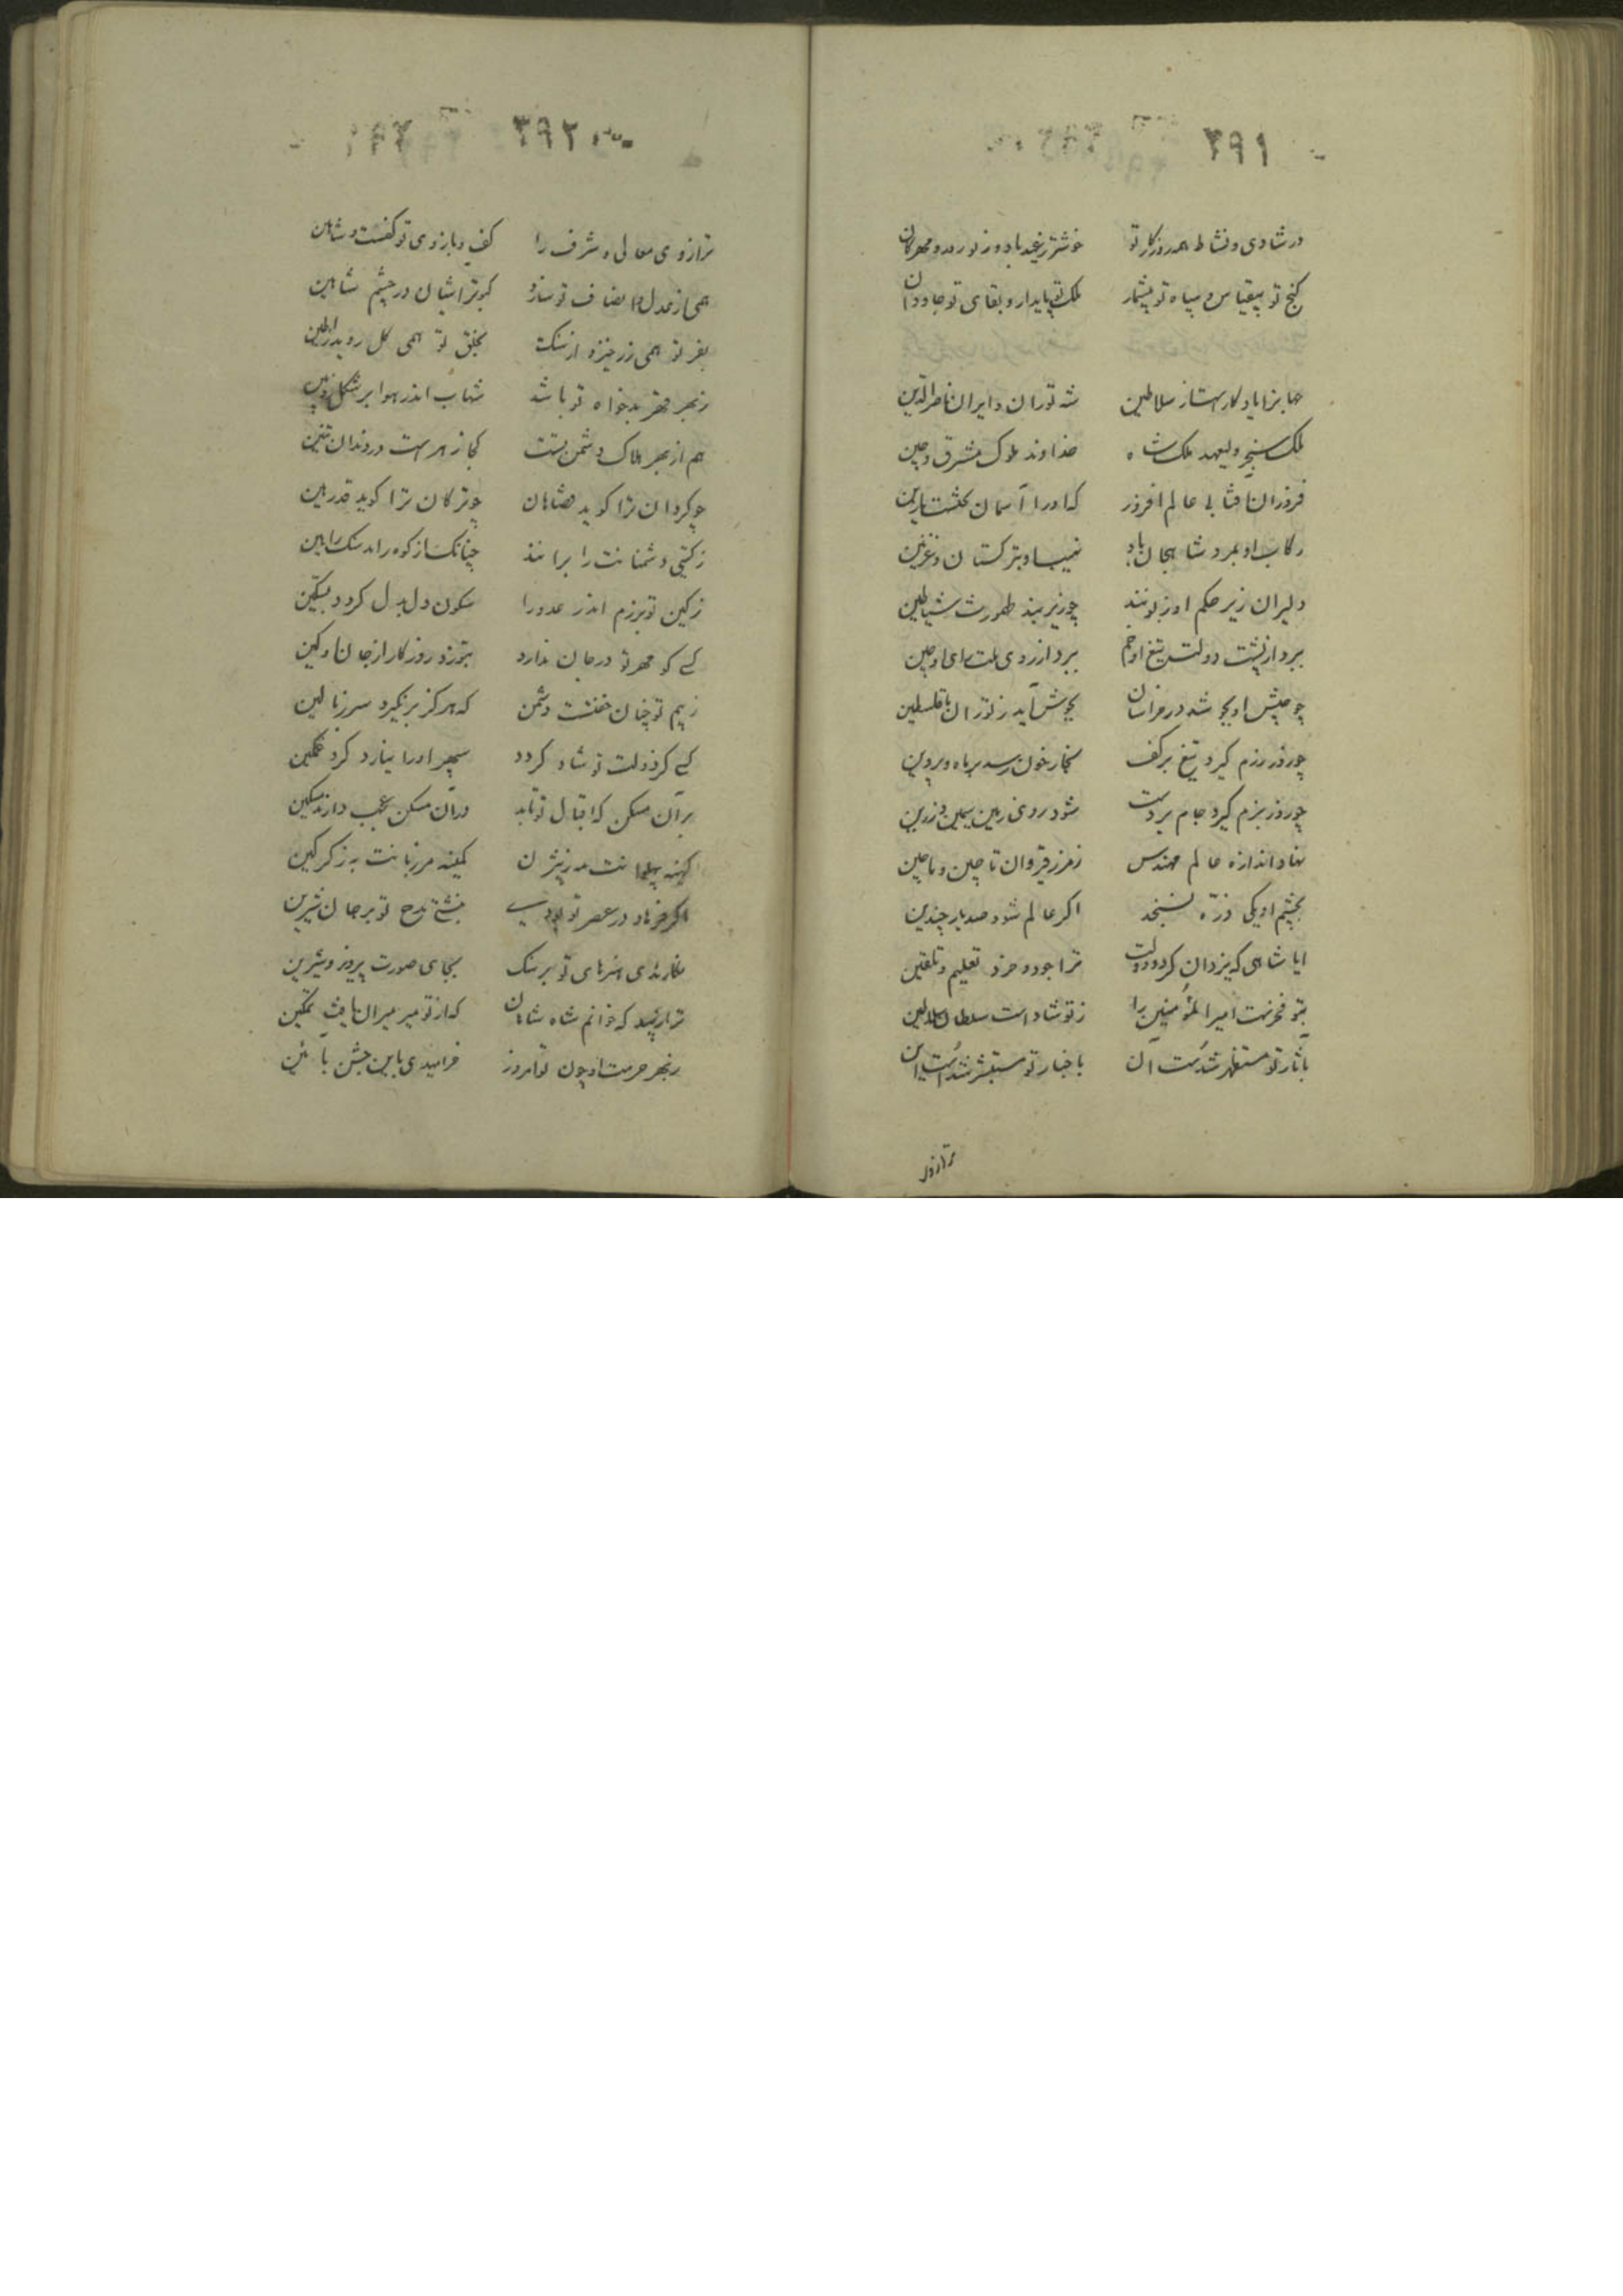 ۳۹۱
در شادی و نشاط همه روزکار تو خوشتر ز عید باد و ز نوروز و مهرکان
کنج تو بیقیاس و سپاه تو بیشمار ملک تو پایدار و بقای تو جاودان
جهانرا یادکار است از سلاطین شه توران و ایران ناصرالدین
ملک سنجر ولیعهد ملک شاه خداوند ملوک مشرق و چین
فروزان افتابی عالم افروز که او را آسمان کشت زین
رکاب او بمرو شاهجان باد نهیب او بترکستان و غزنین
دلیران زیر حکم او زبونند چو زیر بند طهمورث شیاطین
برد از پشت دولت تیغ او خم برد از روی ملت رای او چین
چو جیش او بجوشد در خراسان بجوش آید ز توران تا فلسطین
چو روز رزم کیرد تیغ بر کف بخار خون رسد بر ماه و پروین
چو روز بزم کیرد جام بر دست شود روی زمین سیمین و زرین
نهاد اندازه عالم مهندس ز مرز قیروان تا چین و ماچین
بچشم او یکی ذرّه نسنجد اکر عالم شود صد بار چندین
ایا شاهی که یزدان کرد و دولت ترا جود و خرد تعلیم و تلقین
بتو فخرست امیرالمؤمنین را ز تو شاد است سلطان سلاطین
بآثار تو مستظهر شدست آن باخبار تو مستبشر شد است این
ترازوی
۳۹۲
ترازوی معالی و شرف را کف و بازوی تو کفست و شاهین
همی از عدل و انصاف تو سازد کبوتر اشیان در چشم شاهین
بفر تو همی زر خیزد از سنک بخلق تو همی کل روید از طین
ز بهر قهر بدخواه تو باشد شهاب اندر هوا بر شکل زوبین
هم از بهر هلاک دشمن تست کجا زهر است در دندان تنین
چو کردان ترا کوید هان چو ترکان ترا کوید قدر هین
ز کیتی دشمنانت را برانند چنانک از کوه راند سنک را هین
ز کین تو برزم اندر عدو را سکون دل بدل کردد بسکین
کسی کو مهر تو در جان ندارد بتوزد روزکار از جان او کین
ز بیم تو چنان خفتست دشمن که هرکز برنکیرد سر ز بالین
کسی کز دولت تو شاد کردد سپهر او را نیارد کرد غمکین
بر آن مسکن که اقبال تو تابد در آن مسکن عجب دارند مسکین
کهینه پهلوانت به ز بیژن کمینه مرزبانت به ز کرکین
اکر فرهاد در عصر تو بودی نبشتی مدح تو بر جان شیرین
نکاریدی هنرهای تو بر سنک بجای صورت پرویز و شیرین
ترا زیبد که خوانم شاه شاهان که از تو میر میران یافت تمکین
ز بهر حرمت او چون تو امروز خرامیدی باین جشن بآئین